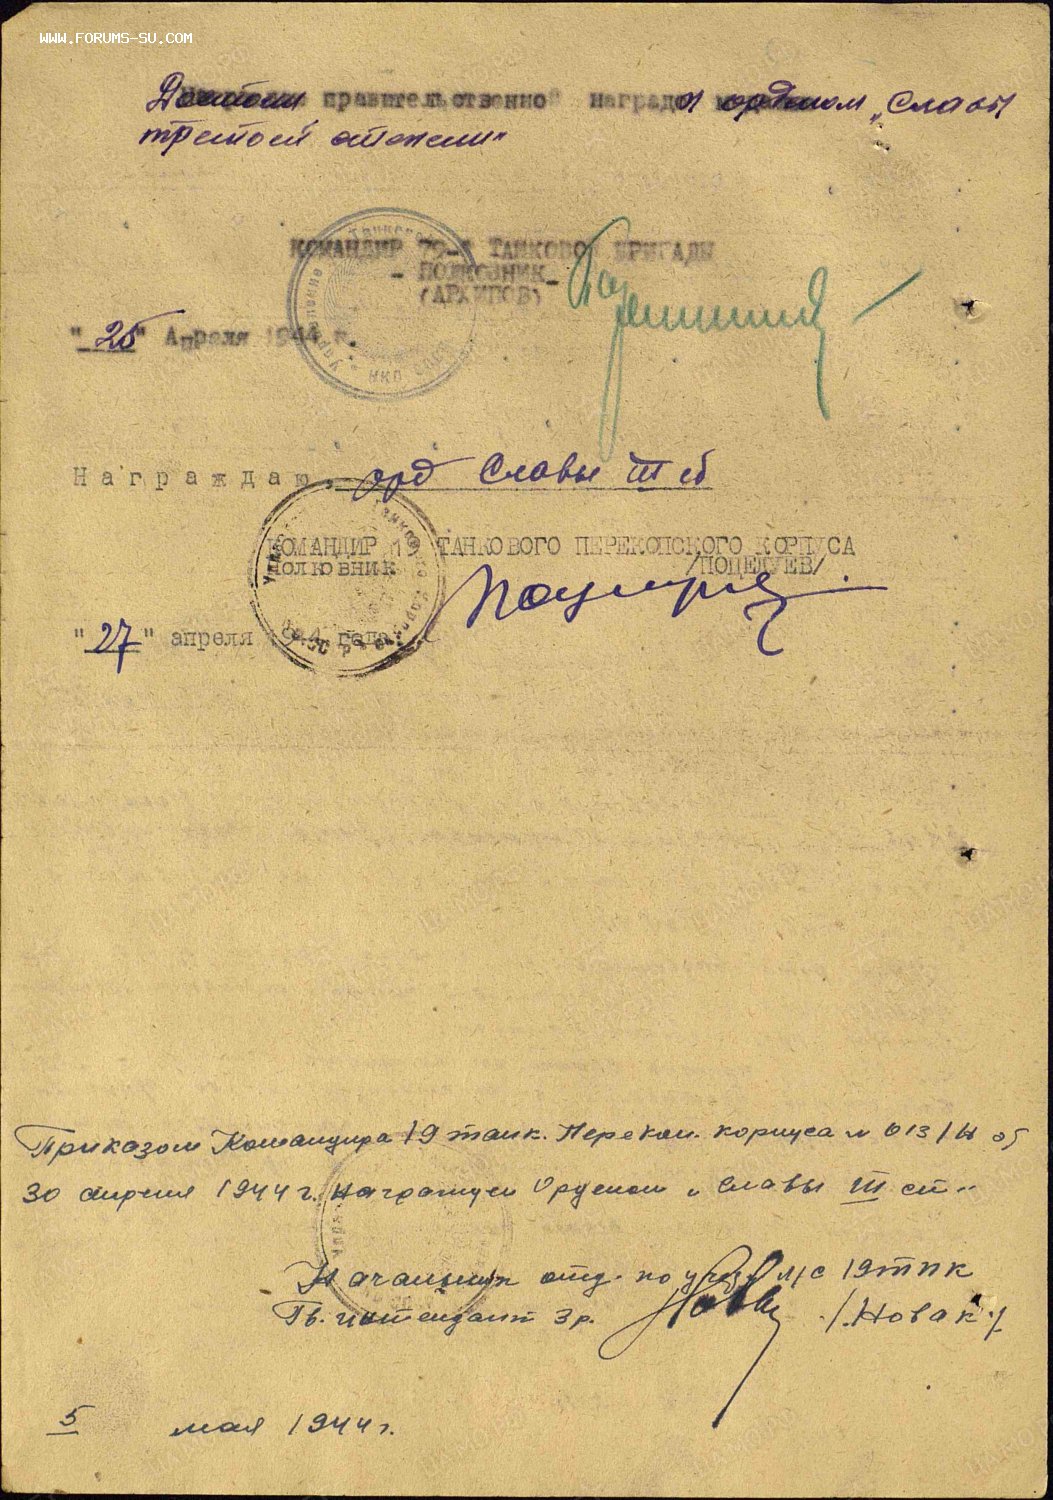 WWW.FORUMS-SU.COM
Достоин правительственной награды орденом „Славы
третьей степени"
КОМАНДИР 79-й ТАНКОВОЙ БРИГАДЫ
- ПОЛКОВНИК -
(АРХИПОВ)
"25" Апреля 1944 г.
Награждаю орд Славы III ст
КОМАНДИР 19 ТАНКОВОГО ПЕРЕКОПСКОГО КОРПУСА
ПОЛКОВНИК /ПОЦЕЛУЕВ/
"27" апреля 1944 года.
Приказом Командира 19 танк. Перекоп. корпуса № 013/н от
30 апреля 1944 г. награжден Орденом „Славы III ст"
Начальник отд. по учету л/с 19 тпк
Гв. интендант 3 р. /.Новак./
5 мая 1944 г.